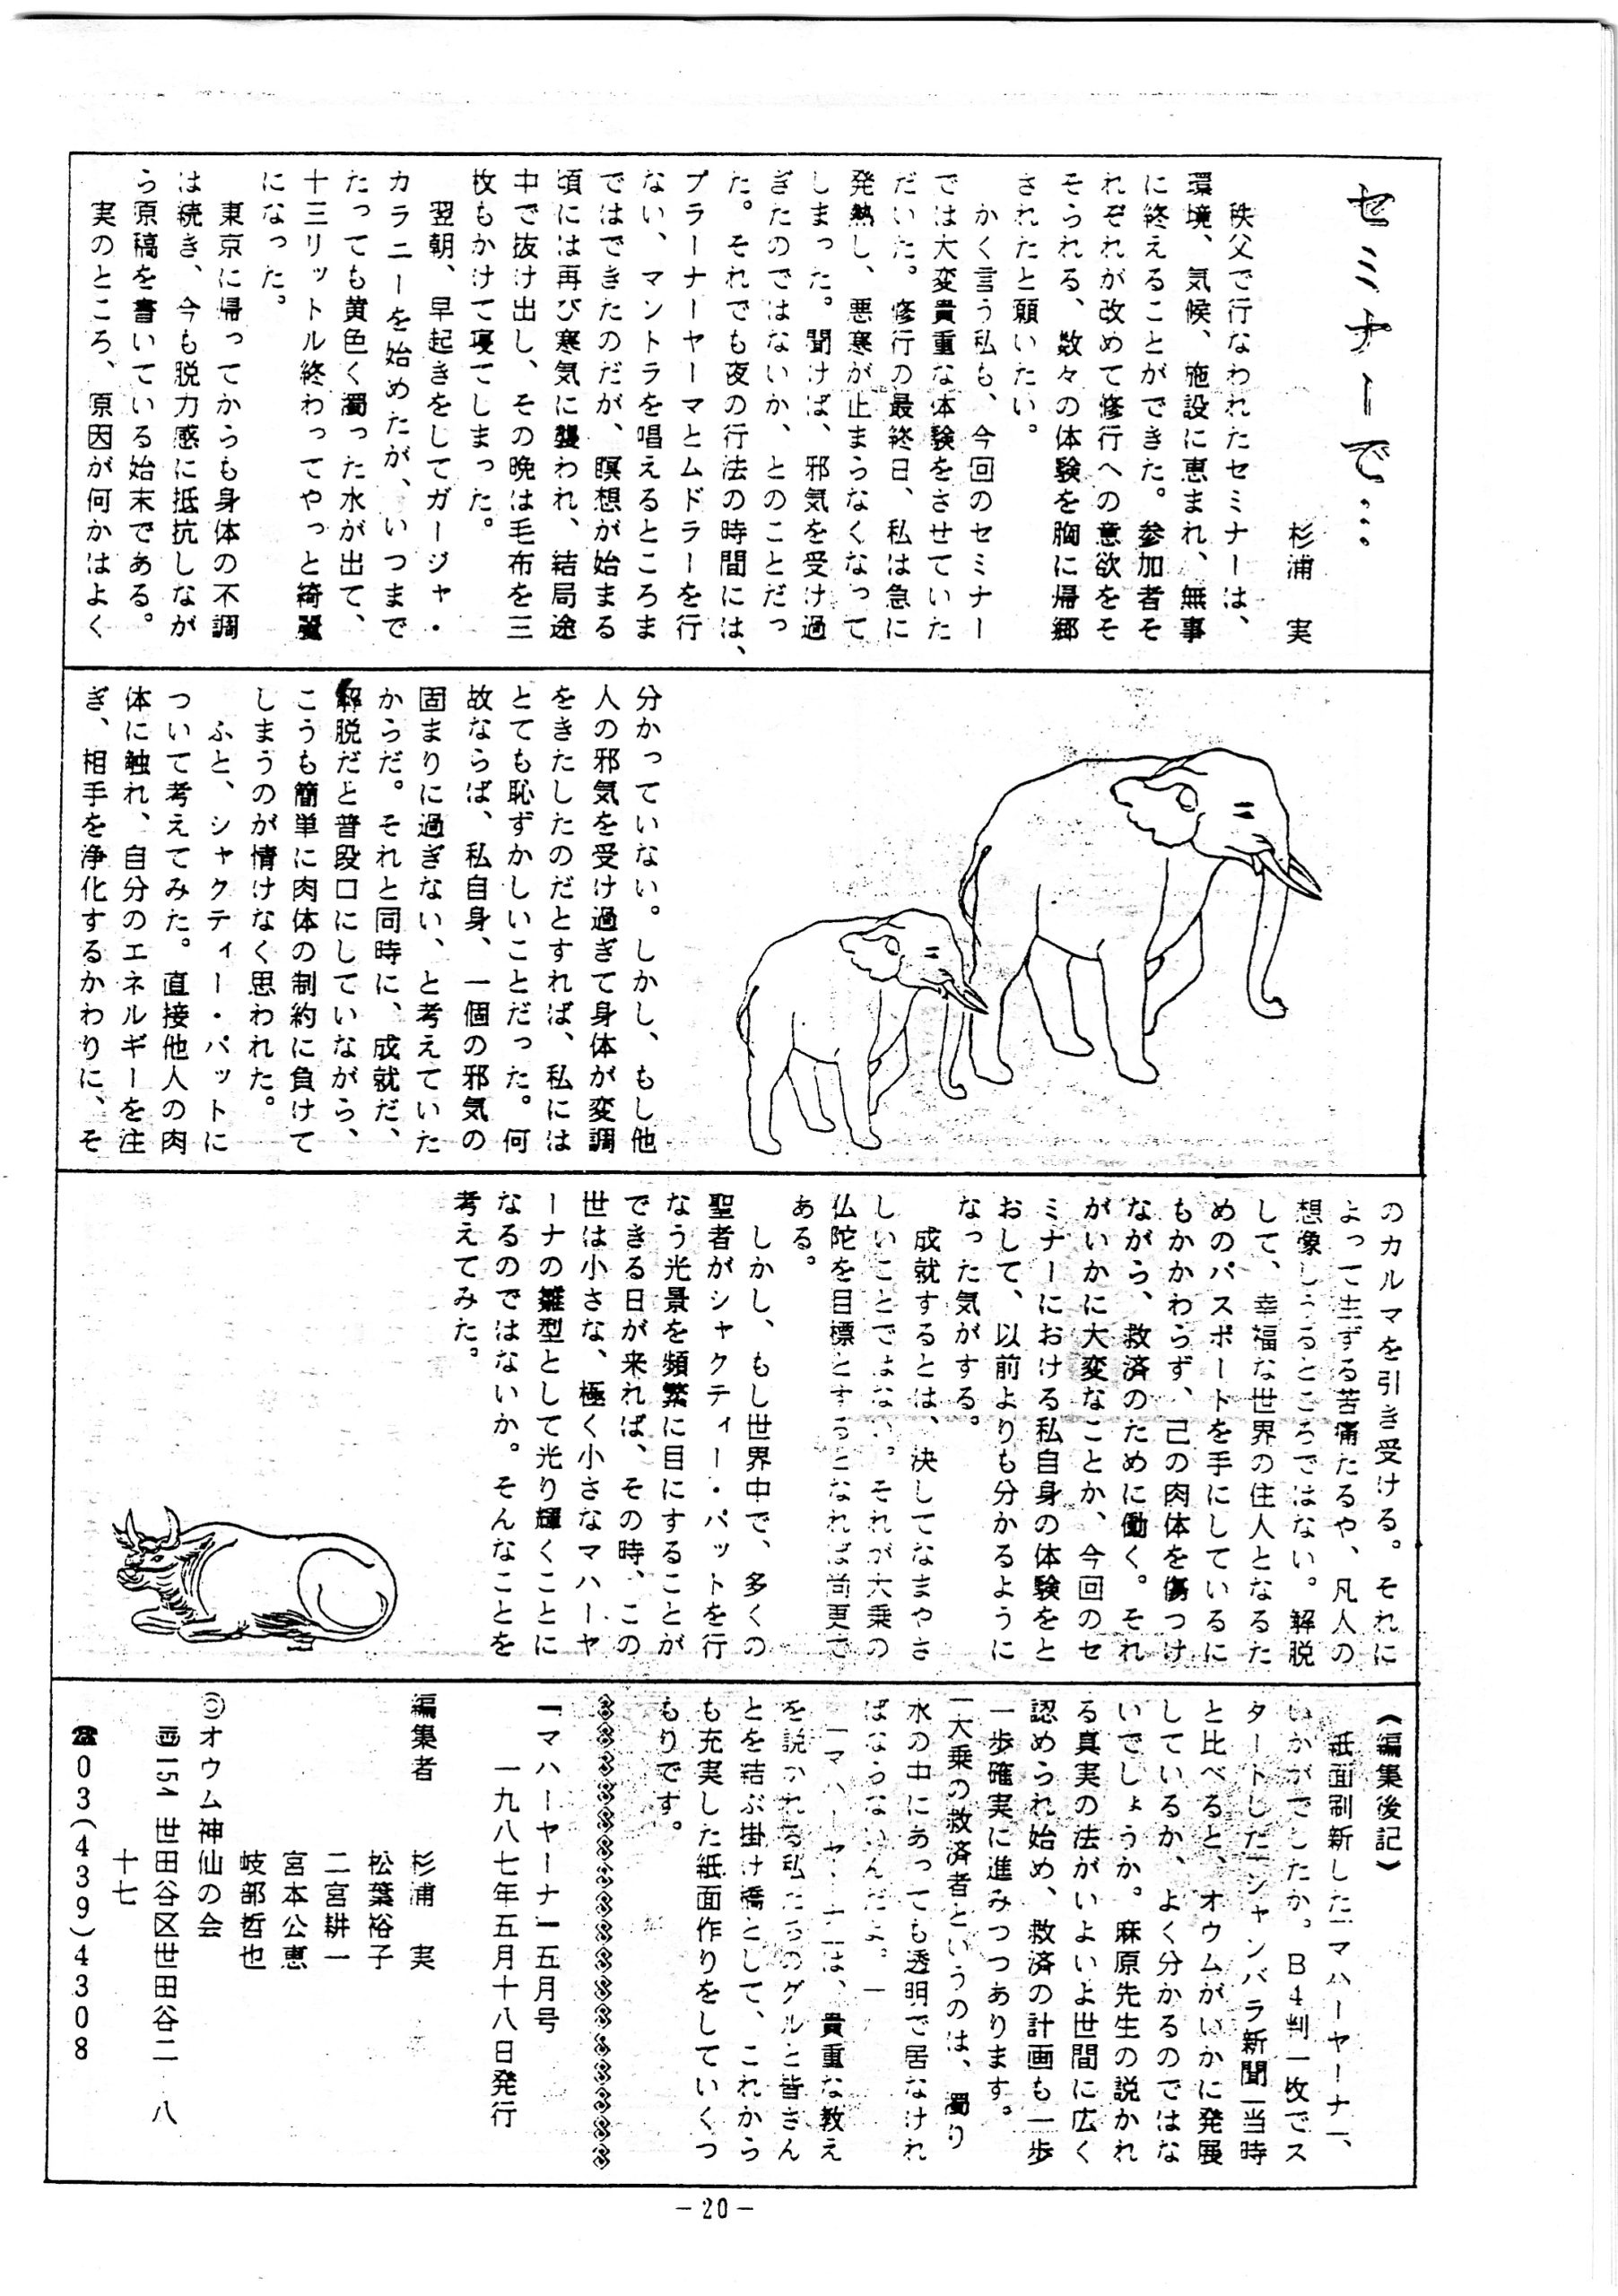 セミナーで…
杉浦　実
秩父で行なわれたセミナーは、
環境、気候、施設に恵まれ、無事
に終えることができた。参加者そ
れぞれが改めて修行への意欲をそ
そられる、数々の体験を胸に帰郷
されたと願いたい。
かく言う私も、今回のセミナー
では大変貴重な体験をさせていた
だいた。修行の最終日、私は急に
発熱し、悪寒が止まらなくなって
しまった。聞けば、邪気を受け過
ぎたのではないか、とのことだっ
た。それでも夜の行法の時間には、
プラーナーヤーマとムドラーを行
ない、マントラを唱えるところま
ではできたのだが、瞑想が始まる
頃には再び寒気に襲われ、結局途
中で抜け出し、その晩は毛布を三
枚もかけて寝てしまった。
翌朝、早起きをしてガージャ・
カラニーを始めたが、いつまで
たっても黄色く濁った水が出て、
十三リットル終わってやっと綺麗
になった。
東京に帰ってからも身体の不調
は続き、今も脱力感に抵抗しなが
ら原稿を書いている始末である。
実のところ、原因が何かはよく
分かっていない。しかし、もし他
人の邪気を受け過ぎて身体が変調
をきたしたのだとすれば、私には
とても恥ずかしいことだった。何
故ならば、私自身、一個の邪気の
固まりに過ぎない、と考えていた
からだ。それと同時に、成就だ、
解脱だと普段口にしていながら、
こうも簡単に肉体の制約に負けて
しまうのが情けなく思われた。
ふと、シャクティー・パットに
ついて考えてみた。直接他人の肉
体に触れ、自分のエネルギーを注
ぎ、相手を浄化するかわりに、そ
のカルマを引き受ける。それに
よって生ずる苦痛たるや、凡人の
想像しうるところではない。解脱
して、幸福な世界の住人となるた
めのパスポートを手にしているに
もかかわらず、己の肉体を傷つけ
ながら、救済のために働く。それ
がいかに大変なことか、今回のセ
ミナーにおける私自身の体験をと
おして、以前よりも分かるように
なった気がする。
成就するとは、決してなまやさ
しいことではない。それが大乗の
仏陀を目標とするとなれば尚更で
ある。
しかし、もし世界中で、多くの
聖者がシャクティー・パットを行
なう光景を頻繁に目にすることが
できる日が来れば、その時、この
世は小さな、極く小さなマハーヤ
ーナの雛型として光り輝くことに
なるのではないか。そんなことを
考えてみた。
《編集後記》
紙面刷新した「マハーヤーナ」、
いかがでしたか。B4判一枚でス
タートした「シャンバラ新聞」当時
と比べると、オウムがいかに発展
しているか、よく分かるのではな
いでしょうか。麻原先生の説かれ
る真実の法がいよいよ世間に広く
認められ始め、救済の計画も一歩
一歩確実に進みつつあります。
「大乗の救済者というのは、濁り
水の中にあっても透明で居なけれ
ばならないんだよ。」
「マハーヤーナ」は、貴重な教え
を説かれる私たちのグルと皆さん
とを結ぶ掛け橋として、これから
も充実した紙面作りをしていくつ
もりです。
「マハーヤーナ」五月号
一九八七年五月十八日発行
編集者　杉浦　実
松葉裕子
二宮耕一
宮本公恵
岐部哲也
©オウム神仙の会
〠154 世田谷区世田谷二　八
十七
☎03(439)4308
－20－